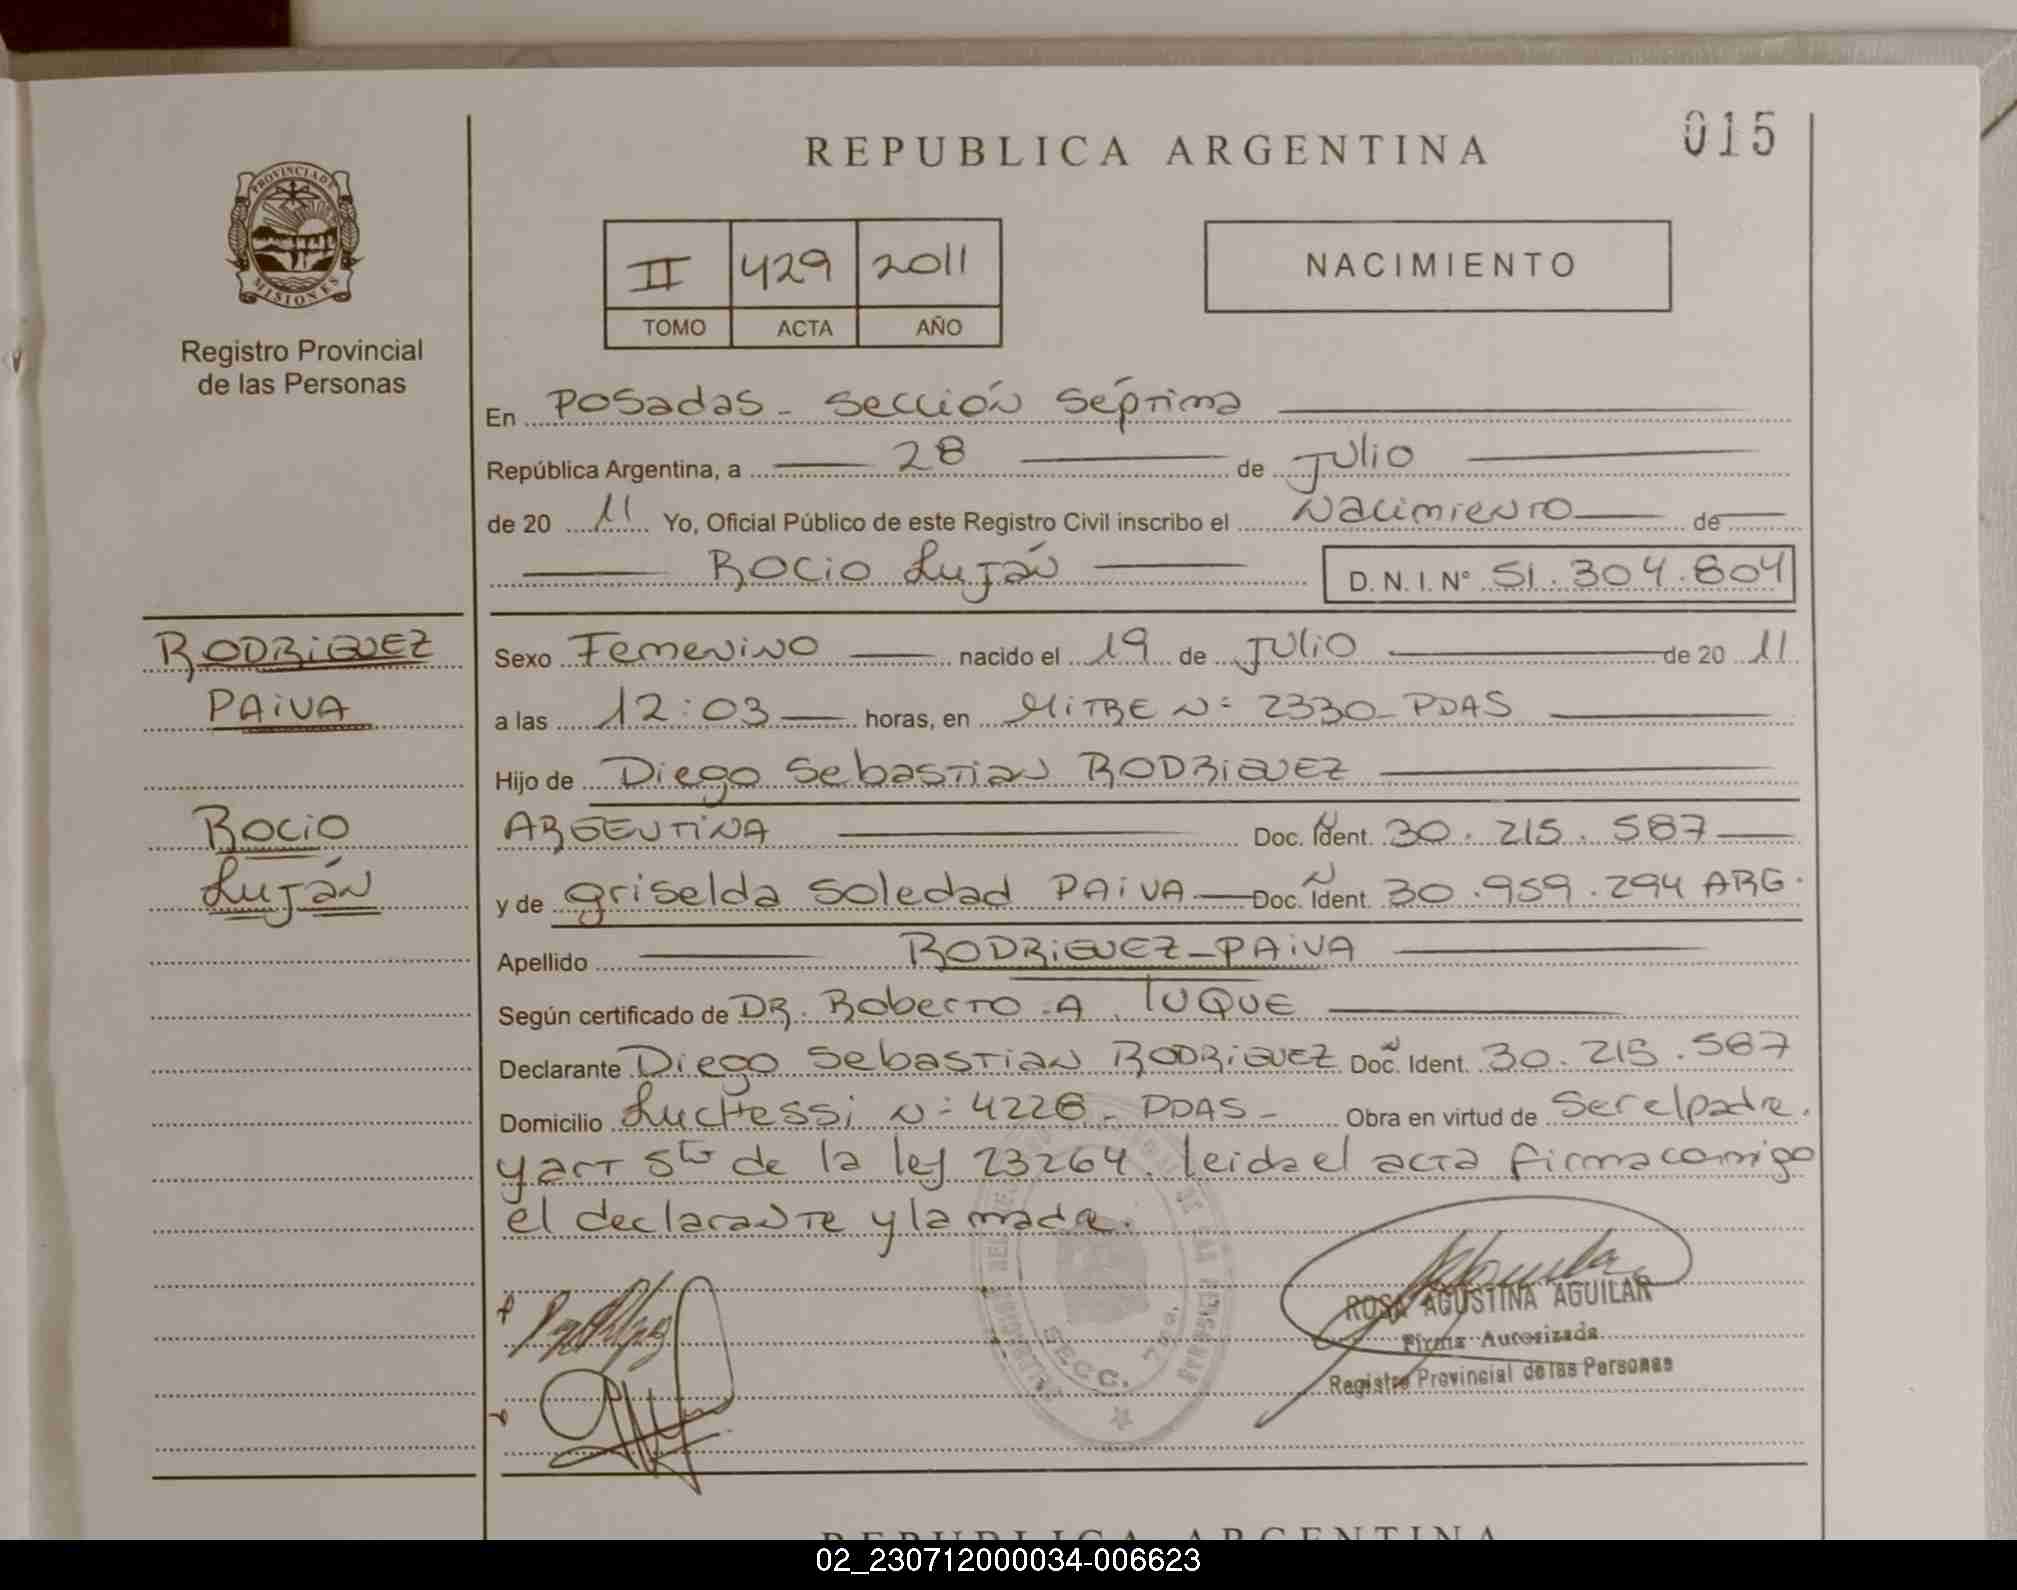 REPUBLICA ARGENTINA
015
PROVINCIA DE
MISIONES
Registro Provincial
de las Personas
II 429 2011
TOMO ACTA AÑO
NACIMIENTO
En Posadas - Sección Séptima
República Argentina, a 28 de Julio
de 20 11 Yo, Oficial Público de este Registro Civil inscribo el Nacimiento de
Rocio Luján D.N.I. N° 51.304.804
RODRIGUEZ
PAIVA
Rocio
Luján
Sexo Femenino nacido el 19 de Julio de 20 11
a las 12:03 horas, en MITRE N= 2330 - PDAS
Hijo de Diego Sebastian RODRIGUEZ
ARGENTINA Doc. Ident. N 30.215.587
y de Griselda Soledad PAIVA Doc. Ident. N 30.959.294 ARG.
Apellido RODRIGUEZ - PAIVA
Según certificado de DR. Roberto A. TUQUE
Declarante Diego Sebastian RODRIGUEZ Doc. N Ident. 30.215.587
Domicilio Luchessi N= 4228 - PDAS - Obra en virtud de Ser el padre.
y art 5to de la ley 23264. leida el acta firma conmigo
el declarante y la madre.
SECC. 7ma.
ROSA AGUSTINA AGUILAR
Firma Autorizada
Registro Provincial de las Personas
REPUBLICA ARGENTINA
02_230712000034-006623